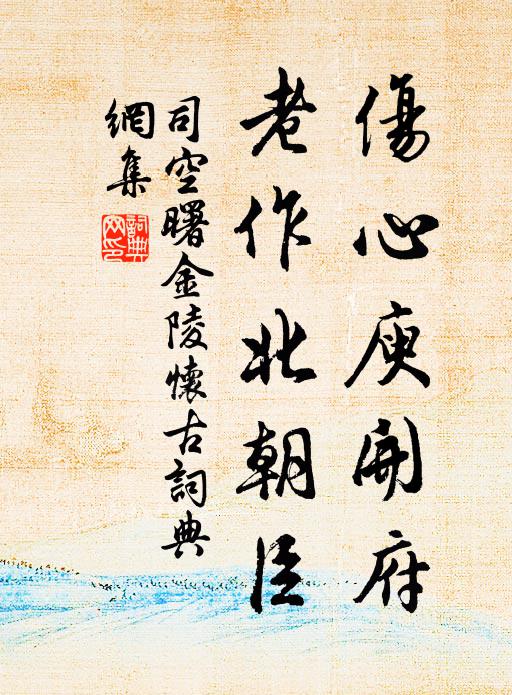 傷心庾開府
老作北朝臣
司空曙金陵懷古詞典
網集
詞典
网印